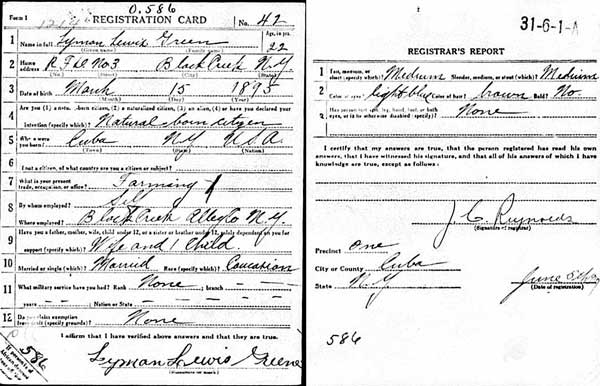 Form 1
1214
0.586
REGISTRATION CARD
No. 42
1 Name in full Lyman Lewis Green
(Given name) (Family name)
Age, in yrs. 22
2 Home address R F D No 3 Black Creek N.Y.
(No.) (Street) (City) (State)
3 Date of birth March 15 1895
(Month) (Day) (Year)
4 Are you (1) a natural-born citizen, (2) a naturalized citizen, (3) an alien, (4) or have you declared your
intention (specify which)? Natural born citizen
5 Where were you born? Cuba N.Y. U.S.A.
(Town) (State) (Nation)
6 If not a citizen, of what country are you a citizen or subject?
7 What is your present trade, occupation, or office? Farming
8 By whom employed? Self
Where employed? Black Creek Alleg Co N.Y.
9 Have you a father, mother, wife, child under 12, or a sister or brother under 12, solely dependent on you for
support (specify which)? Wife and 1 child.
10 Married or single (which)? Married Race (specify which)? Caucasian
11 What military service have you had? Rank None ; branch
years Nation or State
12 Do you claim exemption from draft (specify grounds)? None
I affirm that I have verified above answers and that they are true.
586
Lyman Lewis Greene
31-6-1-A
REGISTRAR'S REPORT
1 Tall, medium, or short (specify which)? Medium Slender, medium, or stout (which)? Medium
2 Color of eyes? light blue Color of hair? brown Bald? No
3 Has person lost arm, leg, hand, foot, or both eyes, or is he otherwise disabled (specify)? None
I certify that my answers are true, that the person registered has read his own
answers, that I have witnessed his signature, and that all of his answers of which I have
knowledge are true, except as follows:
J. C. Reynolds
(Signature of registrar)
Precinct One
City or County Cuba
State N.Y.
June
(Date of registration)
586